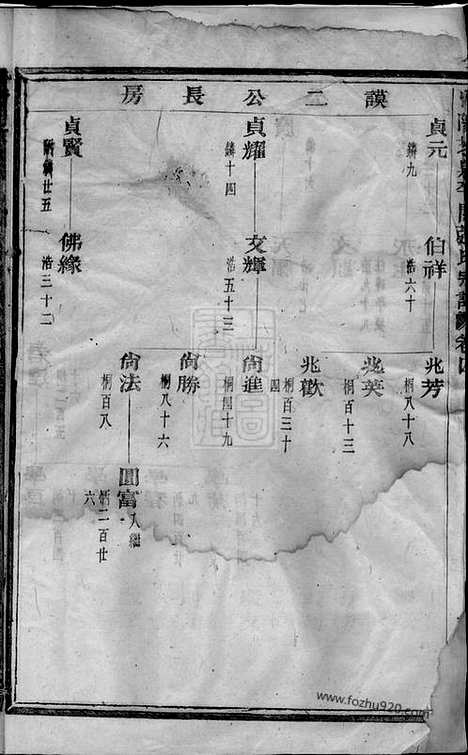 謨二公長房
貞元
鏻九
伯祥
浩六十
兆芳
桐八十八
兆英
桐百十三
兆歡
桐百三十四
貞耀
鏻十四
文輝
浩五十三
尙進
桐四十九
尙勝
桐八十六
尙法
桐百八
圓富
入繼
炳二百廿六
貞賢
附鏻廿五
佛緣
浩三十二
www.fozhu920.com